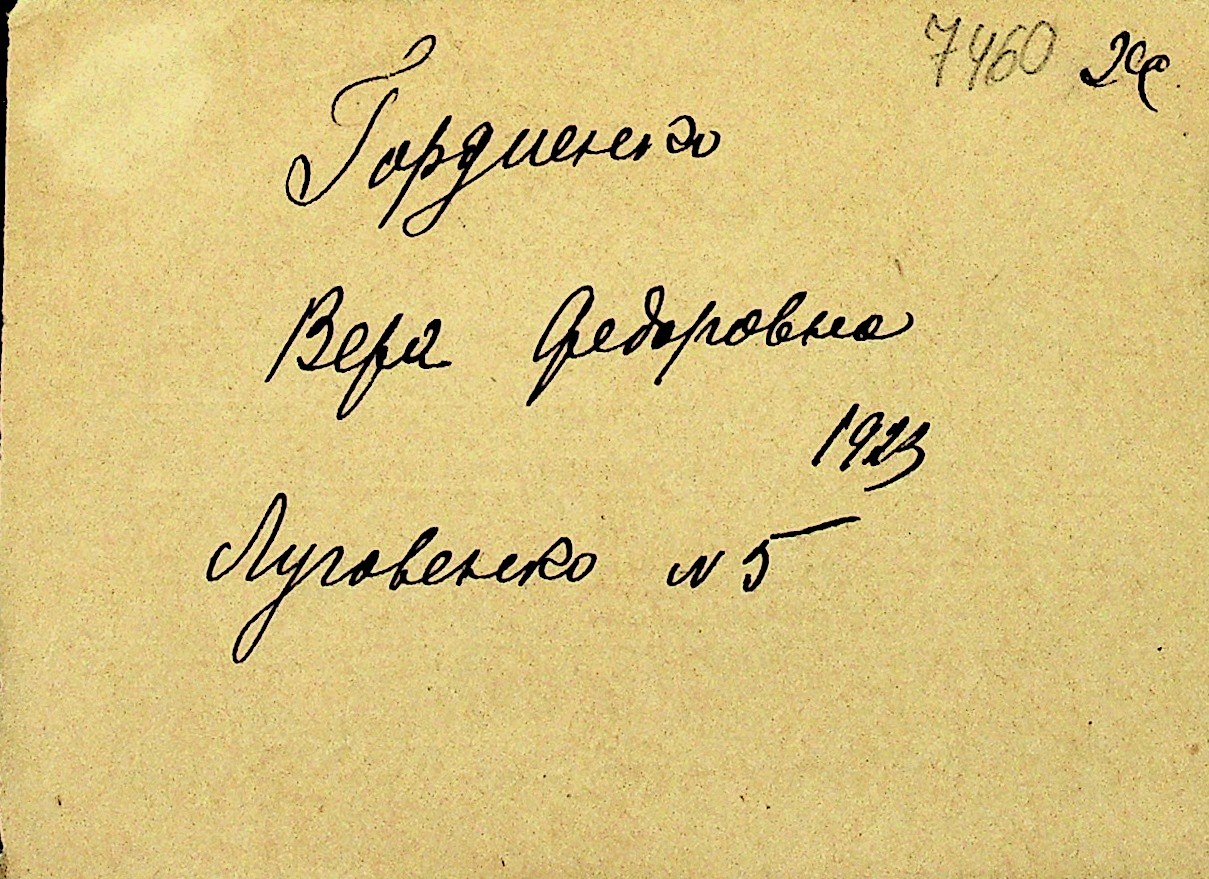 7460
Гордиенко
Вера Федоровна
1923
Луговенско N 5